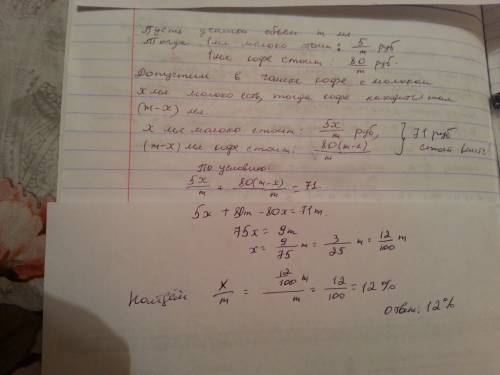 Пусть чашка объем m мл
Тогда 1мл молоко стоит: 5/m руб
1мл кофе стоит: 80/m руб.
Допустим в чашке кофе с молоком
x мл молоко есть, тогда кофе
(m-x) мл.
x мл молоко стоит: 5x/m руб,
(m-x) мл кофе стоит: 80(m-x)/m } 71 руб стоит
По условию:
5x/m + 80(m-x)/m = 71.
5x + 80m - 80x = 71m.
75x = 9m
x = 9/75 m = 3/25 m = 12/100 m
Найдём x/m = 12/100 m / m = 12/100 = 12%
ответ: 12%